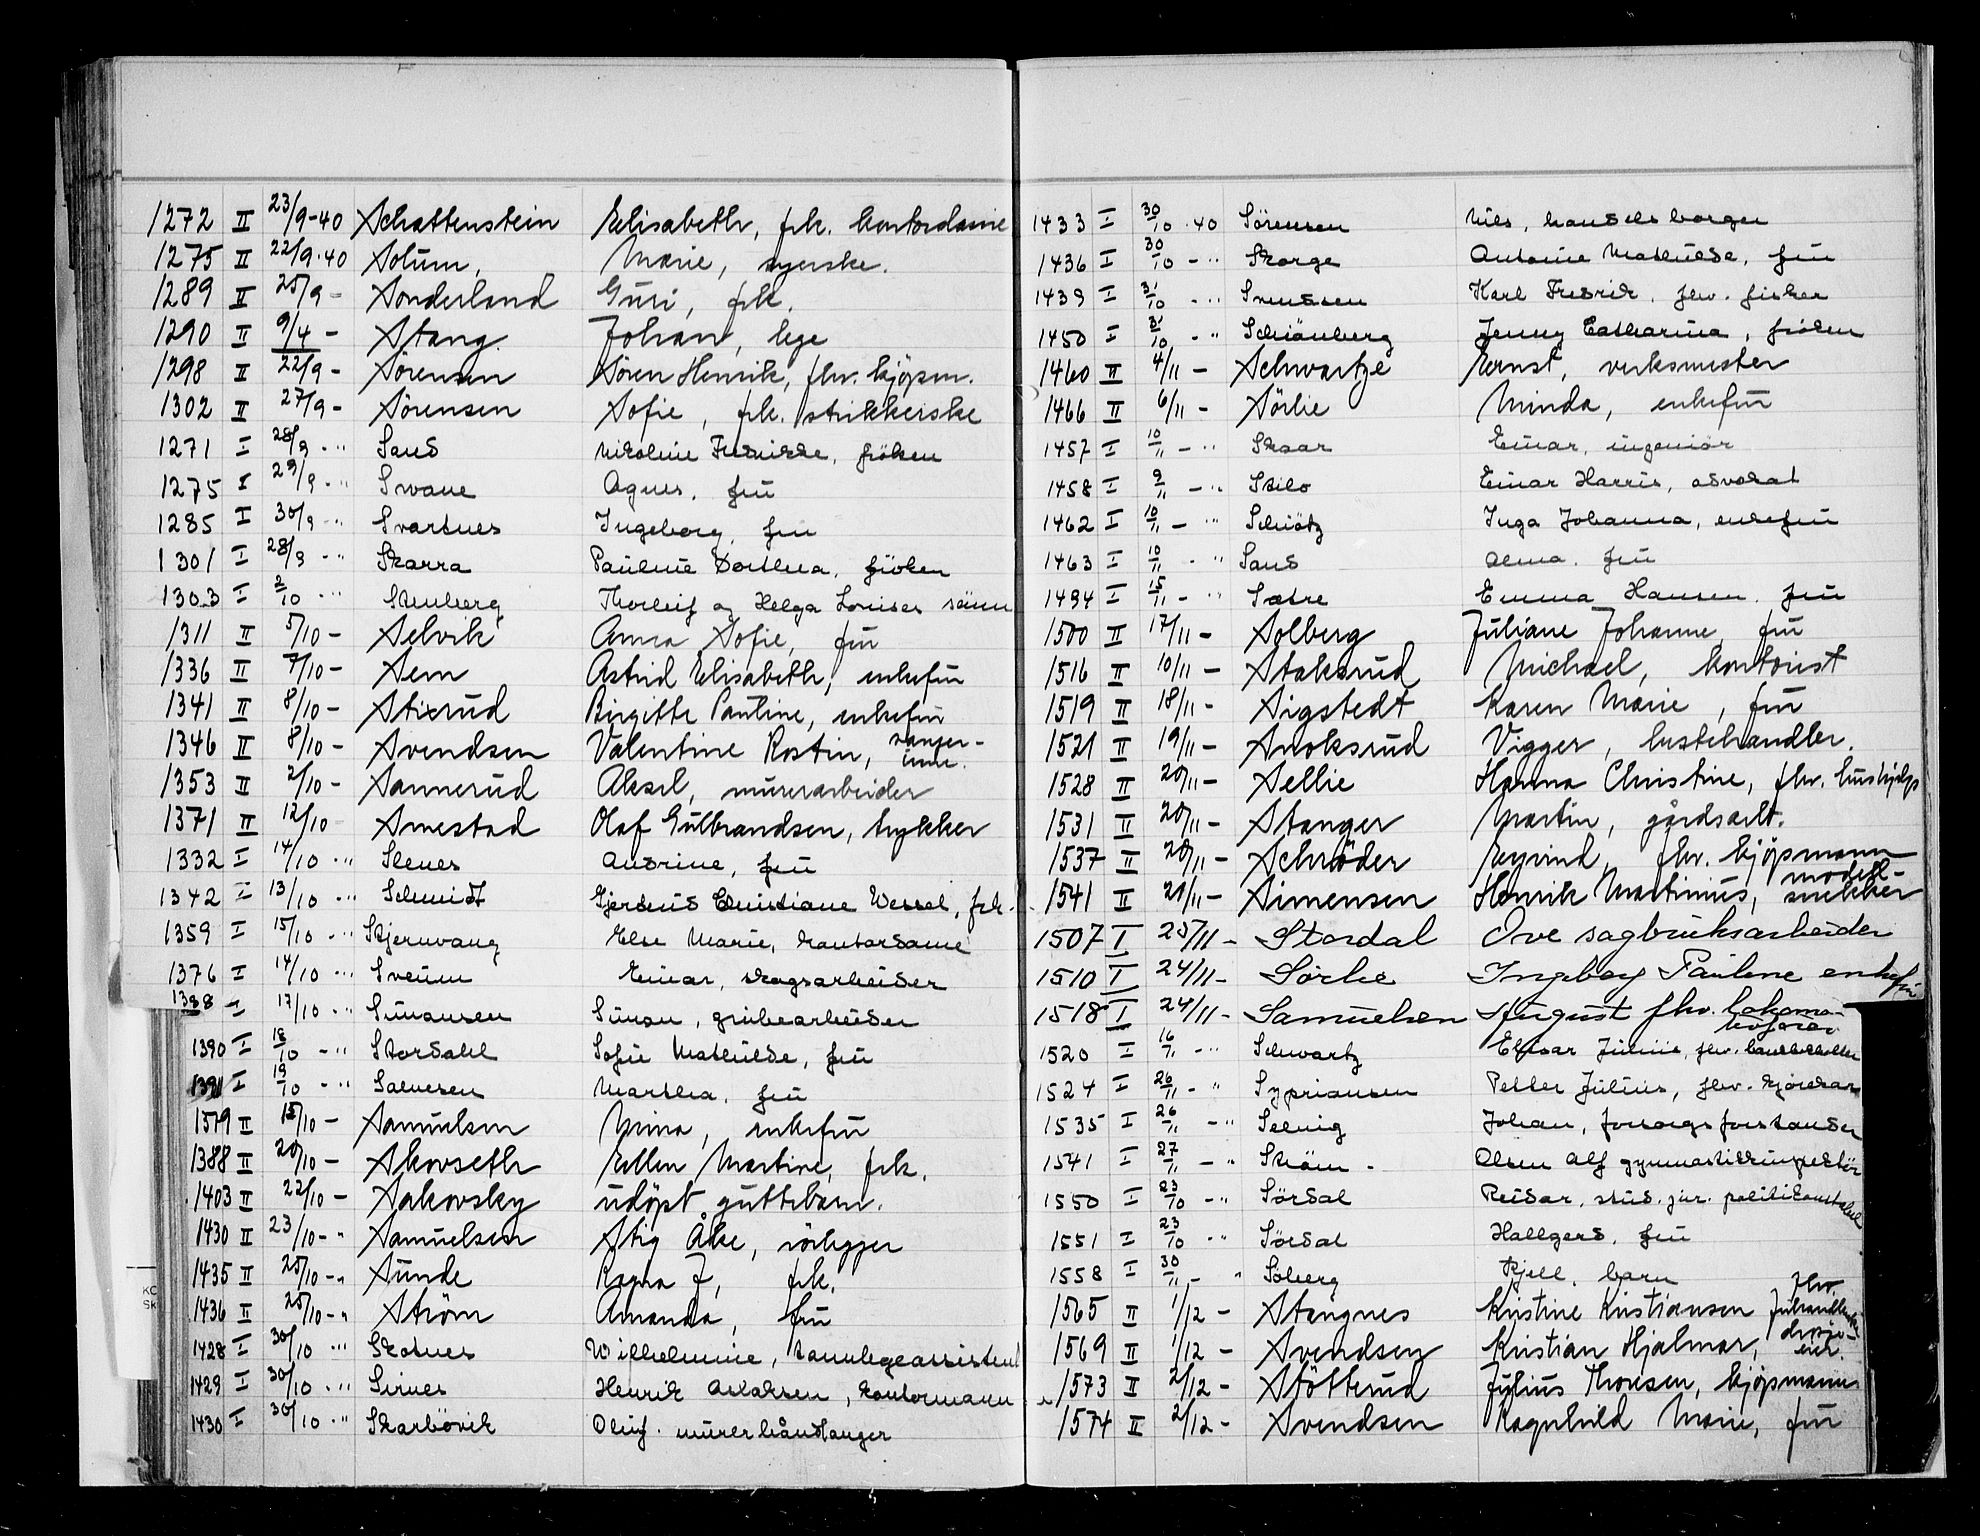 1272 II 23/9-40 Schattenstein Elisabeth, frk. kontordame
1275 II 22/9-40 Solum, Marie, syerske.
1289 II 25/9 - Sonderland Guri, frk.
1290 II 9/4 - Stang. Johan, lege
1298 II 22/9 - Sørensen Søren Henrik, fhv. kjøpm.
1302 II 27/9 - Sørensen Sofie, frk. strikkerske
1271 I 28/9 - " Sand Nikoline Fredrikke, fröken
1275 I 29/9 - " Svane Agnes, fru
1285 I 30/9 - " Svartnes Ingeborg, fru
1301 I 28/9 - " Skarra Pauline Dorthea, fröken
1303 I 2/10 - " Stenberg Thorleif og Helga Louises sönn
1311 II 5/10 - Selvik Anna Sofie, fru
1336 II 7/10 - Sem Astrid Elisabeth, enkefru
1341 II 8/10 - Stixrud Birgitte Pauline, enkefru
1346 II 8/10 - Svendsen Valentine Rostin, sanger-
inne.
1353 II 2/10 - Sannerud Aksel, murerarbeider
1371 II 12/10 - Smestad Olaf Gulbrandsen, trykker
1332 I 14/10 - " Stenes Andrine, fru
1342 I 13/10 - " Schmidt Gjerdrus Christiane Wessel, frk.
1359 I 15/10 - " Skjernvang Else Marie, kontordame
1376 I 14/10 - " Sveum Einar, skogsarbeider
1388 I 17/10 - " Simonsen Simon, grubearbeider
1390 I 18/10 - " Stordahl Sofie Mathilde, fru
1391 I 19/10 - " Salvesen Marthea, fru
1379 II 15/10 - Samuelsen Mina, enkefru
1388 II 20/10 - Skovseth Ellen Martine, frk.
1403 II 22/10 - Sakovsky udöpt guttebarn.
1430 II 23/10 - " Samuelsen Stig Åke, rörlegger
1435 II 25/10 - " Sunde Ragna J, frk.
1436 II 25/10 - " Ström Amanda, fru
1428 I 30/10 - " Skotnes Wilhelmine, tannlegeassistent
1429 I 30/10 - " Sirnes Henrik Aslaksen, kontormann
1430 I 30/10 - " Skarbövik Oluf. murer håndlanger
1433 I 30/10 - 40 Sörensen Nils, handelsborger
1436 I 30/10 - " Skorge Antonie Mathilde, fru
1439 I 31/10 - " Svenssen Karl Fredrik, fhv. fisker
1450 I 31/10 - " Schiönberg Jenny Catharina, fröken
1460 II 4/11 - Schwartze Ernst, verksmester
1466 II 6/11 - Sörlie Minda, enkefru
1457 I 10/11 - " Skaar Einar, ingeniör
1458 I 9/11 - " Skilo Einar Harris, advokat
1462 I 10/11 - " Schiötz Inga Johanna, enkefru
1463 I 10/11 - " Sand Alma. fru
1494 I 15/11 - " Sætre Emma Hansen. fru
1500 II 17/11 - Solberg Juliane Johanne, fru
1516 II 10/11 - Staksrud Michael, kontorist
1519 II 18/11 - Sigstedt Karen Marie, fru
1521 II 19/11 - Snoksrud Vigger, hestehandler.
1528 II 20/11 - Sellie Hanna Christine, fhv. hushjelp
1531 II 20/11 - Stanger Martin, gårdsarb.
1537 II 20/11 - Schrøder Eyvind, fhv. kjøpmann
1541 II 21/11 - Simensen Henrik Martinius, modell-
snekker
1507 I 25/11 - Stordal Ove sagbruksarbeider
1510 I 24/11 - Sørlie Ingeborg Pauline enkefru
1518 I 24/11 - Samuelsen August fhv. lokomo-
tivfører
1520 I 16/11 - " Schwartz
1524 I 26/11 - " Sypriansen Petter Julius, fhv.
1535 I 26/11 - " Selvig Johan, forsorgsforstander
1541 I 27/11 - " Ström - Olsen Alf gymnastikkinspektör
1550 I 23/10 - " Sördal Reidar, stud. jur.
1551 I 23/10 - " Sördal Hallgerd, fru
1558 I 30/11 - " Söberg Kjell, barn
1565 II 1/12 - Stangnes Kristine Kristiansen fhv.
1569 II 1/12 - Svendsen Kristian Hjalmar,
1573 II 2/12 - Støtterud Julius Thorsen, kjøpmann
1574 II 2/12 - Svendsen Ragnhild Marie, fru